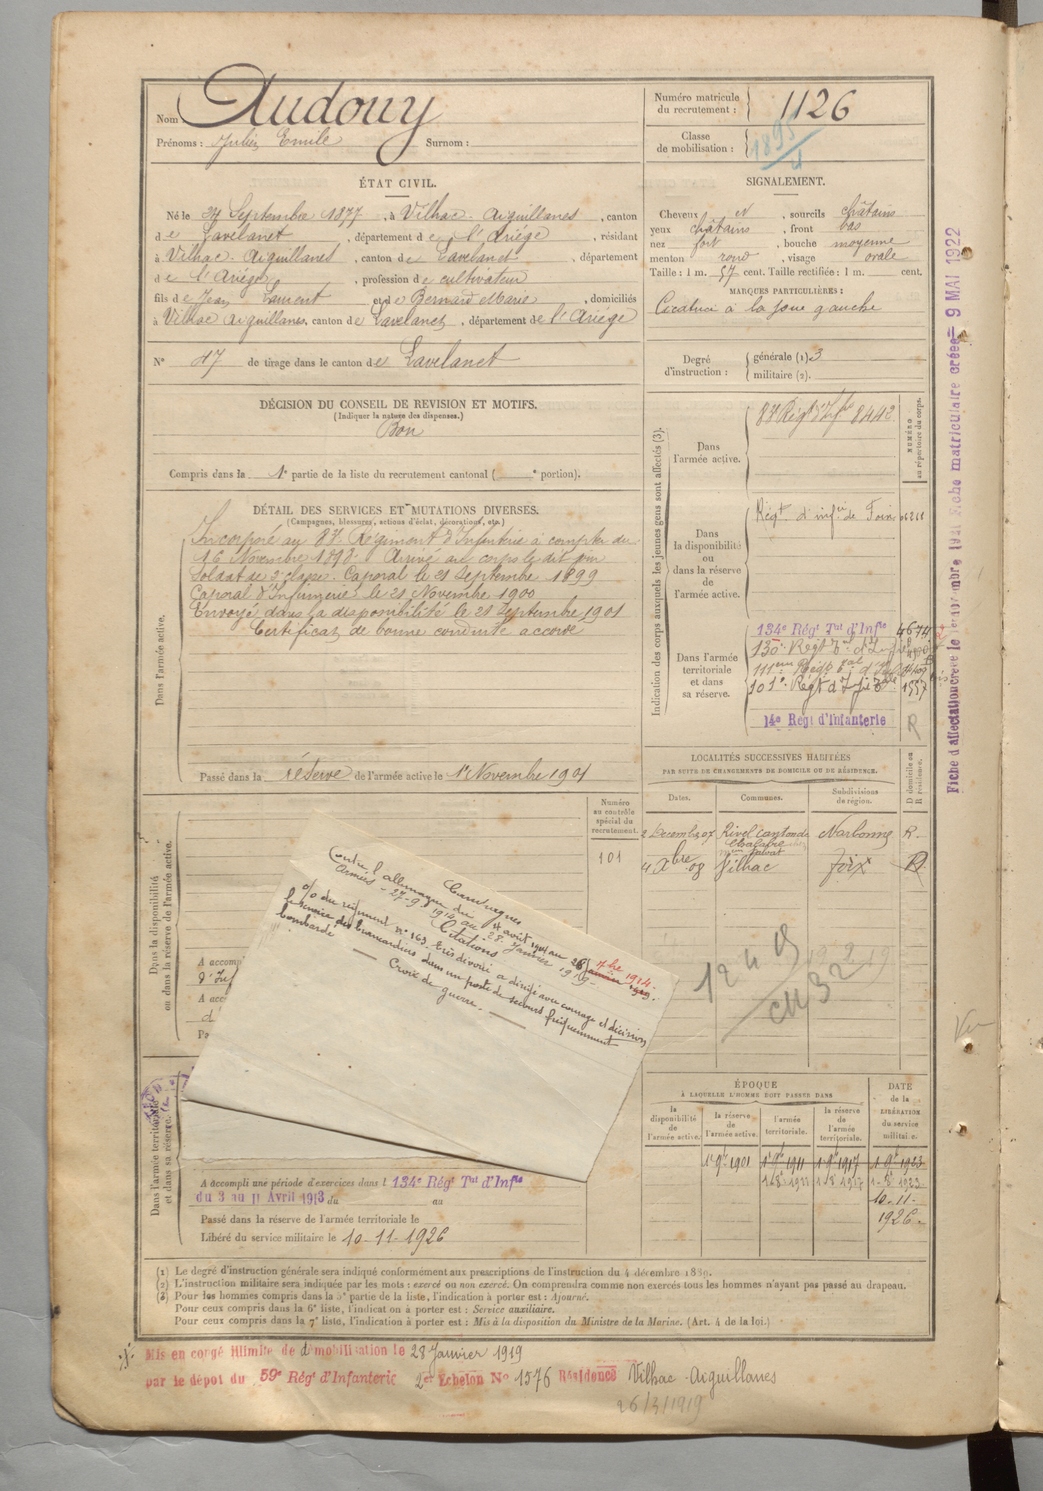 Nom Audouy
Prénoms : Julien Emile Surnom :
Numéro matricule du recrutement : 1126
Classe de mobilisation : 1895
ÉTAT CIVIL.
Né le 27 Septembre 1877, à Vilhac-Aiguillanes, canton
de Lavelanet, département de l'Ariège, résidant
à Vilhac-Aiguillanes, canton de Lavelanet, département
de l'Ariège, profession de cultivateur
fils de Jean Laurent et de Bernard Marie, domiciliés
à Vilhac Aiguillanes, canton de Lavelanet, département de l'Ariège
N° 47 de tirage dans le canton de Lavelanet
SIGNALEMENT.
Cheveux et, sourcils châtains
yeux châtains, front bas
nez fort, bouche moyenne
menton rond, visage ovale
Taille : 1 m. 57 cent. Taille rectifiée : 1 m. cent.
MARQUES PARTICULIÈRES :
Cicatrice à la joue gauche
Degré d'instruction : générale (1) 3
militaire (2).
DÉCISION DU CONSEIL DE REVISION ET MOTIFS.
(Indiquer la nature des dispenses.)
Bon
Compris dans la 1e partie de la liste du recrutement cantonal ( e portion).
DÉTAIL DES SERVICES ET MUTATIONS DIVERSES.
(Campagnes, blessures, actions d'éclat, décorations, etc.)
Dans l'armée active.
Incorporé au 87e Régiment d'Infanterie à compter du
16 Novembre 1898. Arrivé au corps le dit jour
Soldat de 2e classe. Caporal le 21 Septembre 1899
Caporal d'Infirmerie le 21 Novembre 1900
Envoyé dans la disponibilité le 21 Septembre 1901
Certificat de bonne conduite accordé
Passé dans la réserve de l'armée active le 1er Novembre 1901
Indication des corps auxquels les jeunes gens sont affectés (3).
NUMÉRO au répertoire du corps.
Dans l'armée active.
87e Régt d'Infie 8442
Dans la disponibilité ou dans la réserve de l'armée active.
Régt d'infie de Foix
Dans l'armée territoriale et dans sa réserve.
134e Régt Tal d'Infie 4674
130e Régt Tal d'Infie
111eme Régt Tal d'Infie
101e Régt d'Infie Tale 1557
14e Régt d'Infanterie R
Fiche d'affectation créée le 1er novembre 1921 Fiche matriculaire créée - 9 MAI 1922
LOCALITÉS SUCCESSIVES HABITÉES
PAR SUITE DE CHANGEMENTS DE DOMICILE OU DE RÉSIDENCE.
Dates. Communes. Subdivisions de région. D domicile ou R résidence.
2 Décembre 07 Rivel canton de Chalabre Narbonne R.
4 Xbre 08 Vilhac Foix D
12 4 19
19 2 19
Numéro au contrôle spécial du recrutement.
101
Dans la disponibilité ou dans la réserve de l'armée active.
A accomp
d'Inf
A acc
d'
Campagnes
Contre l'allemagne du 4 août 1914 au 26 7bre 1914.
Armées - 27-9 1914 au 28 Janvier 1919 -
Citations
O/ du régiment n° 163. Très dévoué a dirigé avec courage et décision
le service des brancardiers dans un poste de secours fréquemment
bombardé
Croix de guerre.
Dans l'armée territoriale et dans sa réserve.
A accompli une période d'exercices dans l 134e Régt Tal d'Infie
du 3 au 11 Avril 1913 du au
Passé dans la réserve de l'armée territoriale le
Libéré du service militaire le 10-11-1926
ÉPOQUE
À LAQUELLE L'HOMME DOIT PASSER DANS
DATE de la LIBÉRATION du service militaire.
la disponibilité de l'armée active.
la réserve de l'armée active.
l'armée territoriale.
la réserve de l'armée territoriale.
1 9e 1901 1 9e 1911 1 9e 1917 1 9e 1923
10-11-1926.
(1) Le degré d'instruction générale sera indiqué conformément aux prescriptions de l'instruction du 4 décembre 1889.
(2) L'instruction militaire sera indiquée par les mots : exercé ou non exercé. On comprendra comme non exercés tous les hommes n'ayant pas passé au drapeau.
(3) Pour les hommes compris dans la 5e partie de la liste, l'indication à porter est : Ajourné.
Pour ceux compris dans la 6e liste, l'indication à porter est : Service auxiliaire.
Pour ceux compris dans la 7e liste, l'indication à porter est : Mis à la disposition du Ministre de la Marine. (Art. 4 de la loi.)
Mis en congé illimité de démobilisation le 28 Janvier 1919
par le dépôt du 59e Régt d'Infanterie 2e Echelon No 1576 Résidence Vilhac-Aiguillanes
26/3/1919